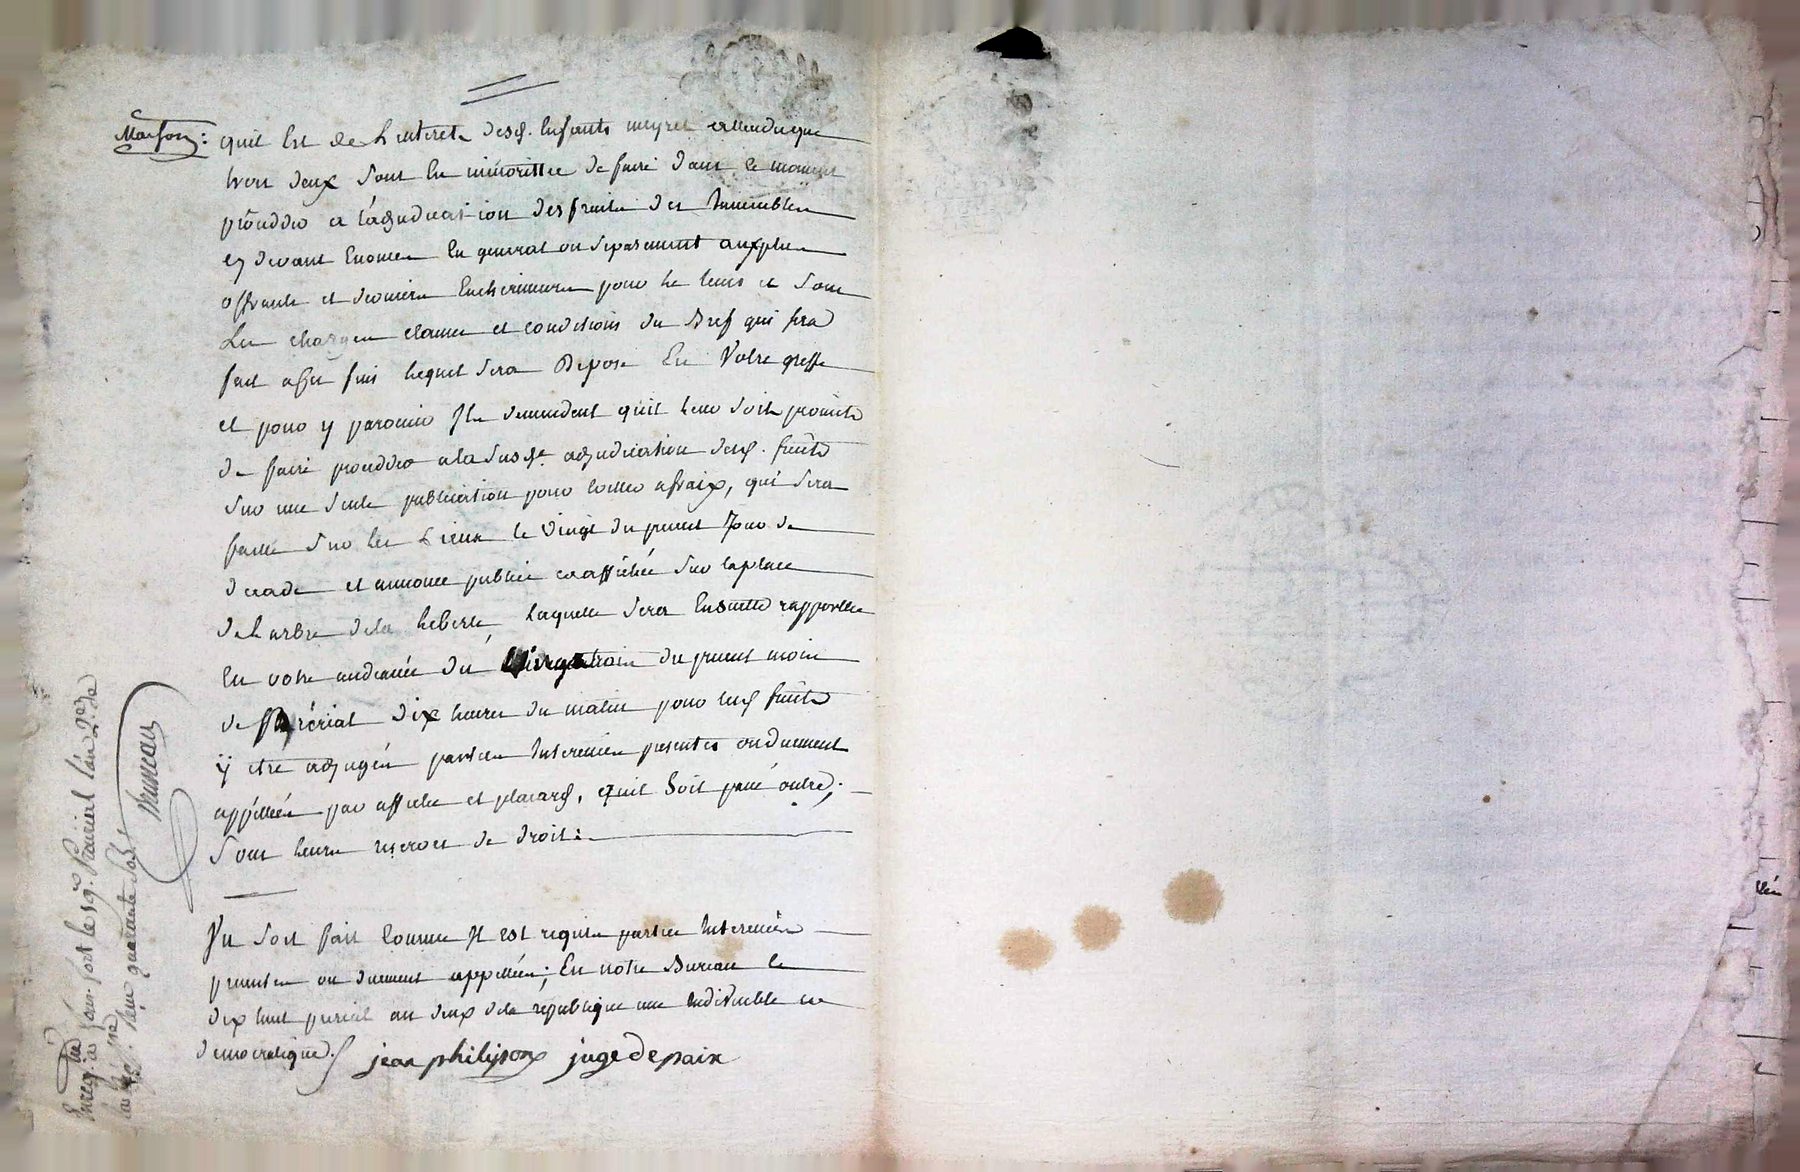 Maison:
quil Est de Linteret desd. Enfants meyret attenduque
trois deux sont En minorittee de faire dans le moment
procéddér a ladjudication des fruits des Immeubles
cy devant Enoncés En general ou séparement auxplus
offrants et derniers Encherisseurs pour le tems et sous
Les charges clauses et conditions du Bref qui sera
fait a cet fins lequel sera Déposé En Votre greffe
et pour y parvenir Ils demandent quil leur soit promits
de faire procédder a la susd.e adjudication desd. fruits
sur une seule publication pour éviter a fraix, qui sera
faitte sur les Lieux le vingt du présent Jour de
decade et annonce publiée et affichée sur laplace
de L'arbre de la Liberté Laquelle sera Ensuitte rapporttée
En votre audiance du vingttrois du présent mois
de prérial dix heures du matin pour lesd fruits
y etre adjugés parties Interessées présentes ou duement
appellées par affiche et placard, et quil Soit passé outre;
Sous leurs réserves de droit:
Vu soit fait comme Il est requis parties Interessées
présentes ou duement appellées; En notre Bureau le
dix huit prérial an deux de la république une indivisible et
democratique. jean philipon juge de paix
Enreg.té a St. fort le 19.e Prairial l'an 2.e de
la Rép. Reçu quarante sols
Bruneau